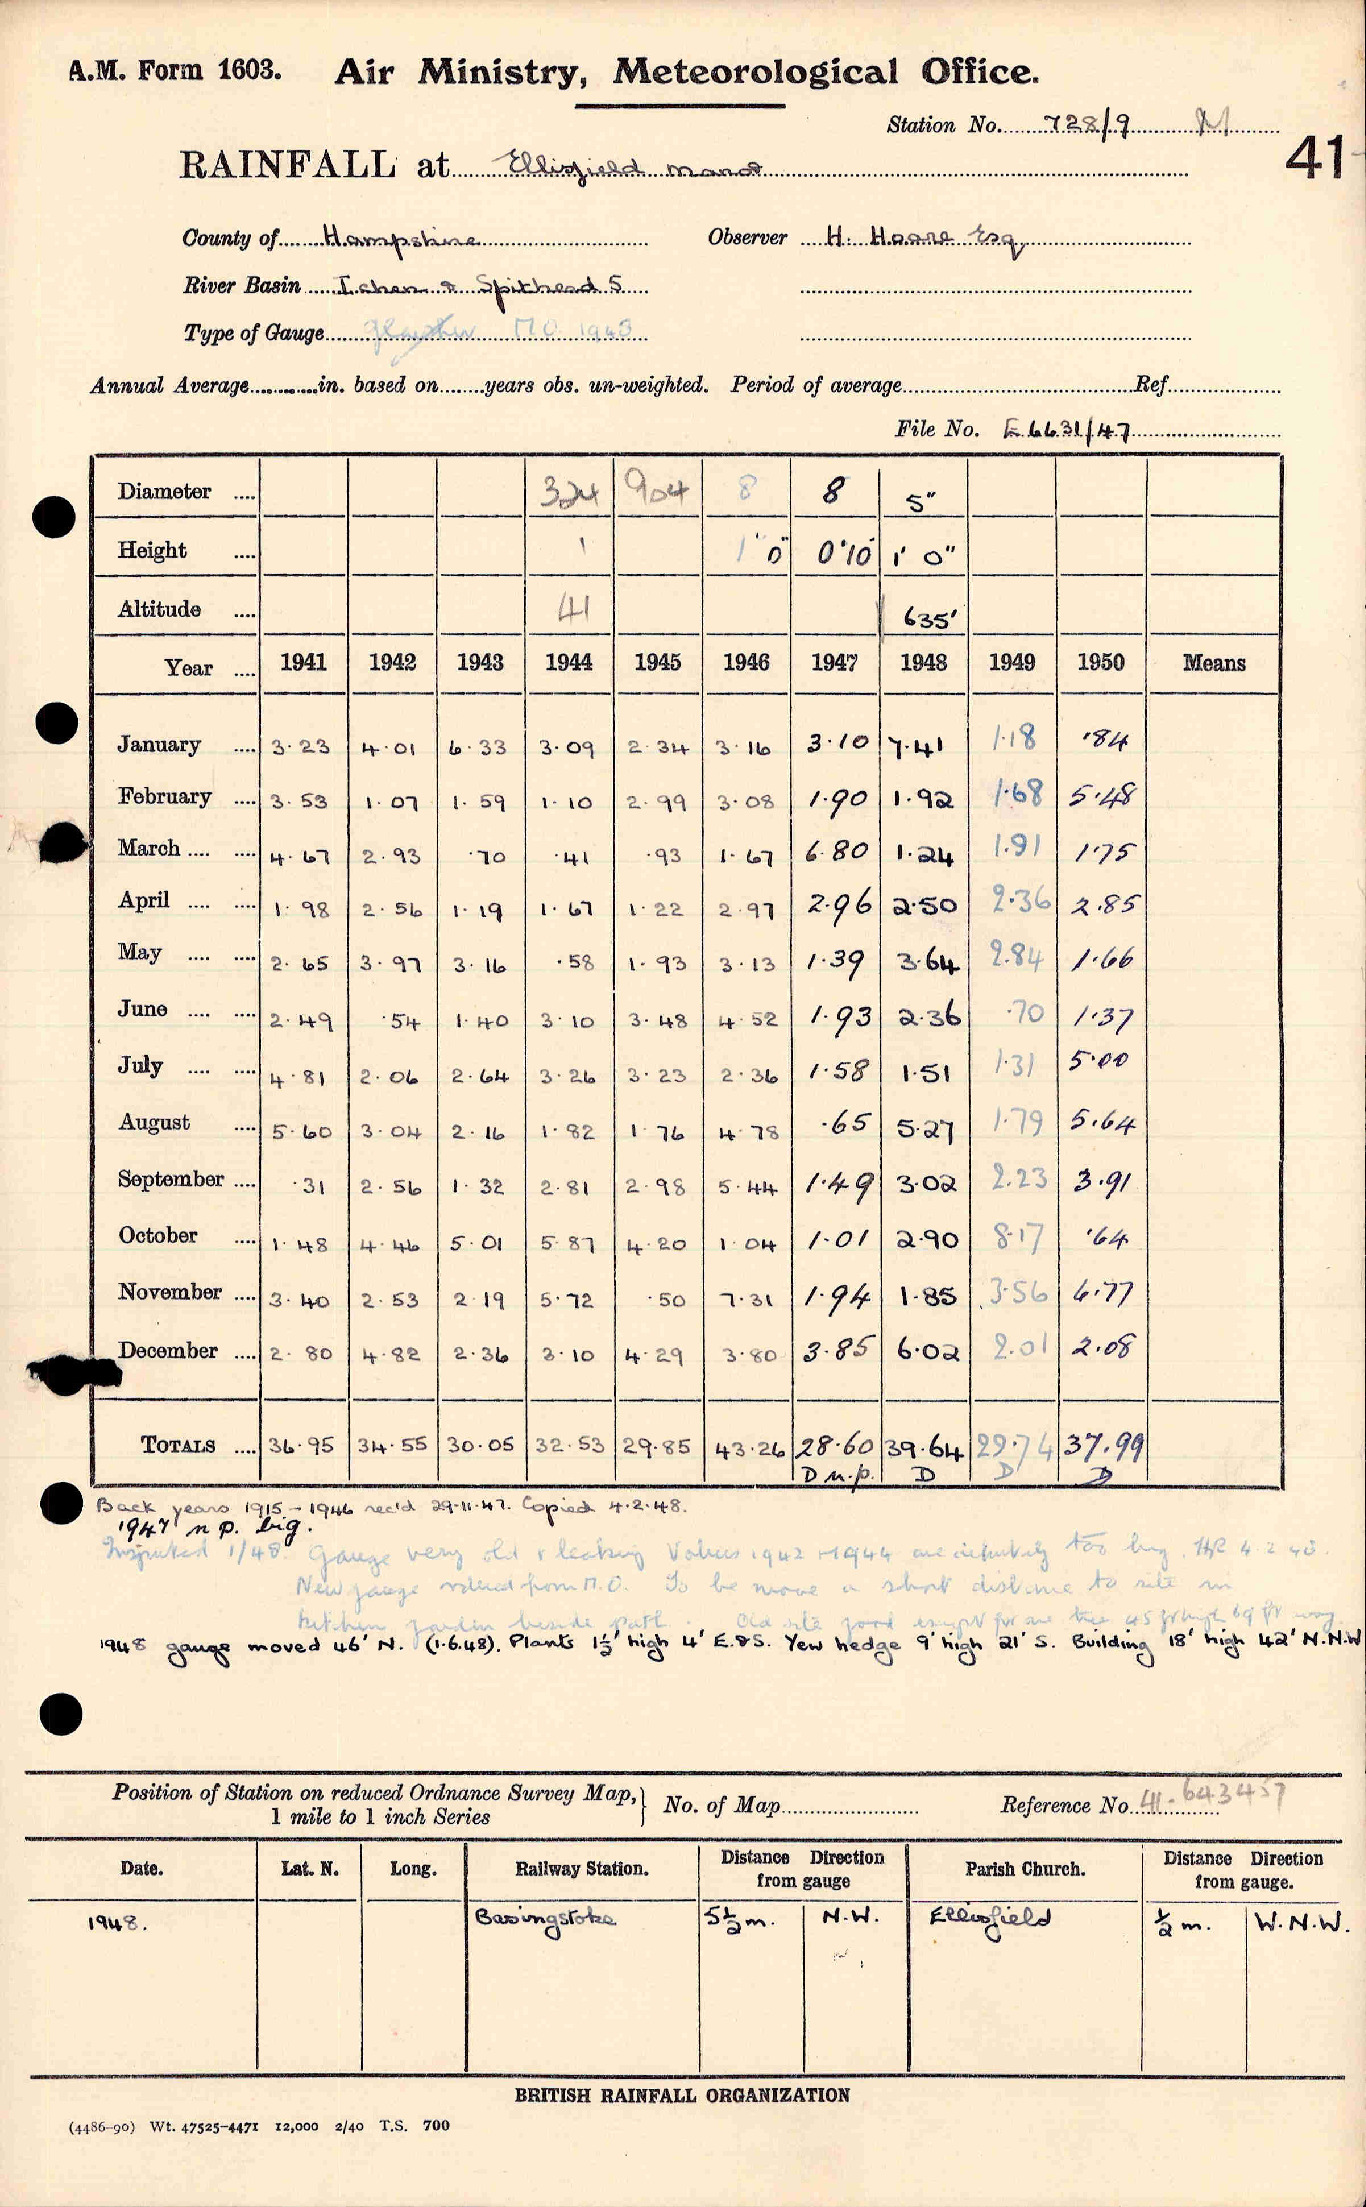 A.M. Form 1603. Air Ministry, Meteorological Office.
Station No. 728/9 M
41
RAINFALL at Ellisfield Manor
County of Hampshire Observer H. Hoare Esq
River Basin Ichen & Spithead S
Type of Gauge Glaisher M O 1943
Annual Average in. based on years obs. un-weighted. Period of average Ref
File No. E 6631/47
Diameter .... 324 904 8 8 5"
Height .... 1 1' 0" 0'10" 1' 0"
Altitude .... 41 635'
Year .... 1941 1942 1943 1944 1945 1946 1947 1948 1949 1950 Means
January .... 3·23 4·01 6·33 3·09 2·34 3·16 3·10 7·41 1·18 ·84
February .... 3·53 1·07 1·59 1·10 2·99 3·08 1·90 1·92 1·68 5·48
March .... .... 4·67 2·93 ·70 ·41 ·93 1·67 6·80 1·24 1·91 1·75
April .... .... 1·98 2·56 1·19 1·67 1·22 2·97 2·96 2·50 2·36 2·85
May .... .... 2·65 3·97 3·16 ·58 1·93 3·13 1·39 3·64 2·84 1·66
June .... .... 2·49 ·54 1·40 3·10 3·48 4·52 1·93 2·36 ·70 1·37
July .... .... 4·81 2·06 2·64 3·26 3·23 2·36 1·58 1·51 1·31 5·00
August .... 5·60 3·04 2·16 1·82 1·76 4·78 ·65 5·27 1·79 5·64
September .... ·31 2·56 1·32 2·81 2·98 5·44 1·49 3·02 2·23 3·91
October .... 1·48 4·46 5·01 5·87 4·20 1·04 1·01 2·90 8·17 ·64
November .... 3·40 2·53 2·19 5·72 ·50 7·31 1·94 1·85 3·56 6·77
December .... 2·80 4·82 2·36 3·10 4·29 3·80 3·85 6·02 2·01 2·08
TOTALS .... 36·95 34·55 30·05 32·53 29·85 43·26 28·60 39·64 29·74 37·99
D n.p. D D D
Back years 1915–1946 rec'd 29·11·47. Copied 4·2·48.
1947 n p. big.
Inspected 1/48. Gauge very old & leaking Values 1942–1944 are definitely too big. 4 2 48.
New gauge ordered from M.O. To be move a short distance to site in
kitchen garden beside path. Old site good except for one tree 45 ft high 69 ft way.
1948 gauge moved 46' N. (1·6·48). Plants 1½' high 4' E.&S. Yew hedge 9' high 21' S. Building 18' high 42' N.N.W
Position of Station on reduced Ordnance Survey Map,
1 mile to 1 inch Series
No. of Map Reference No. 41·643457
Date. Lat. N. Long. Railway Station. Distance Direction from gauge Parish Church. Distance Direction from gauge.
1948. Basingstoke 5½ m. N.W. Ellisfield ½ m. W.N.W.
BRITISH RAINFALL ORGANIZATION
(4486-90) Wt. 47525-4471 12,000 2/40 T.S. 700